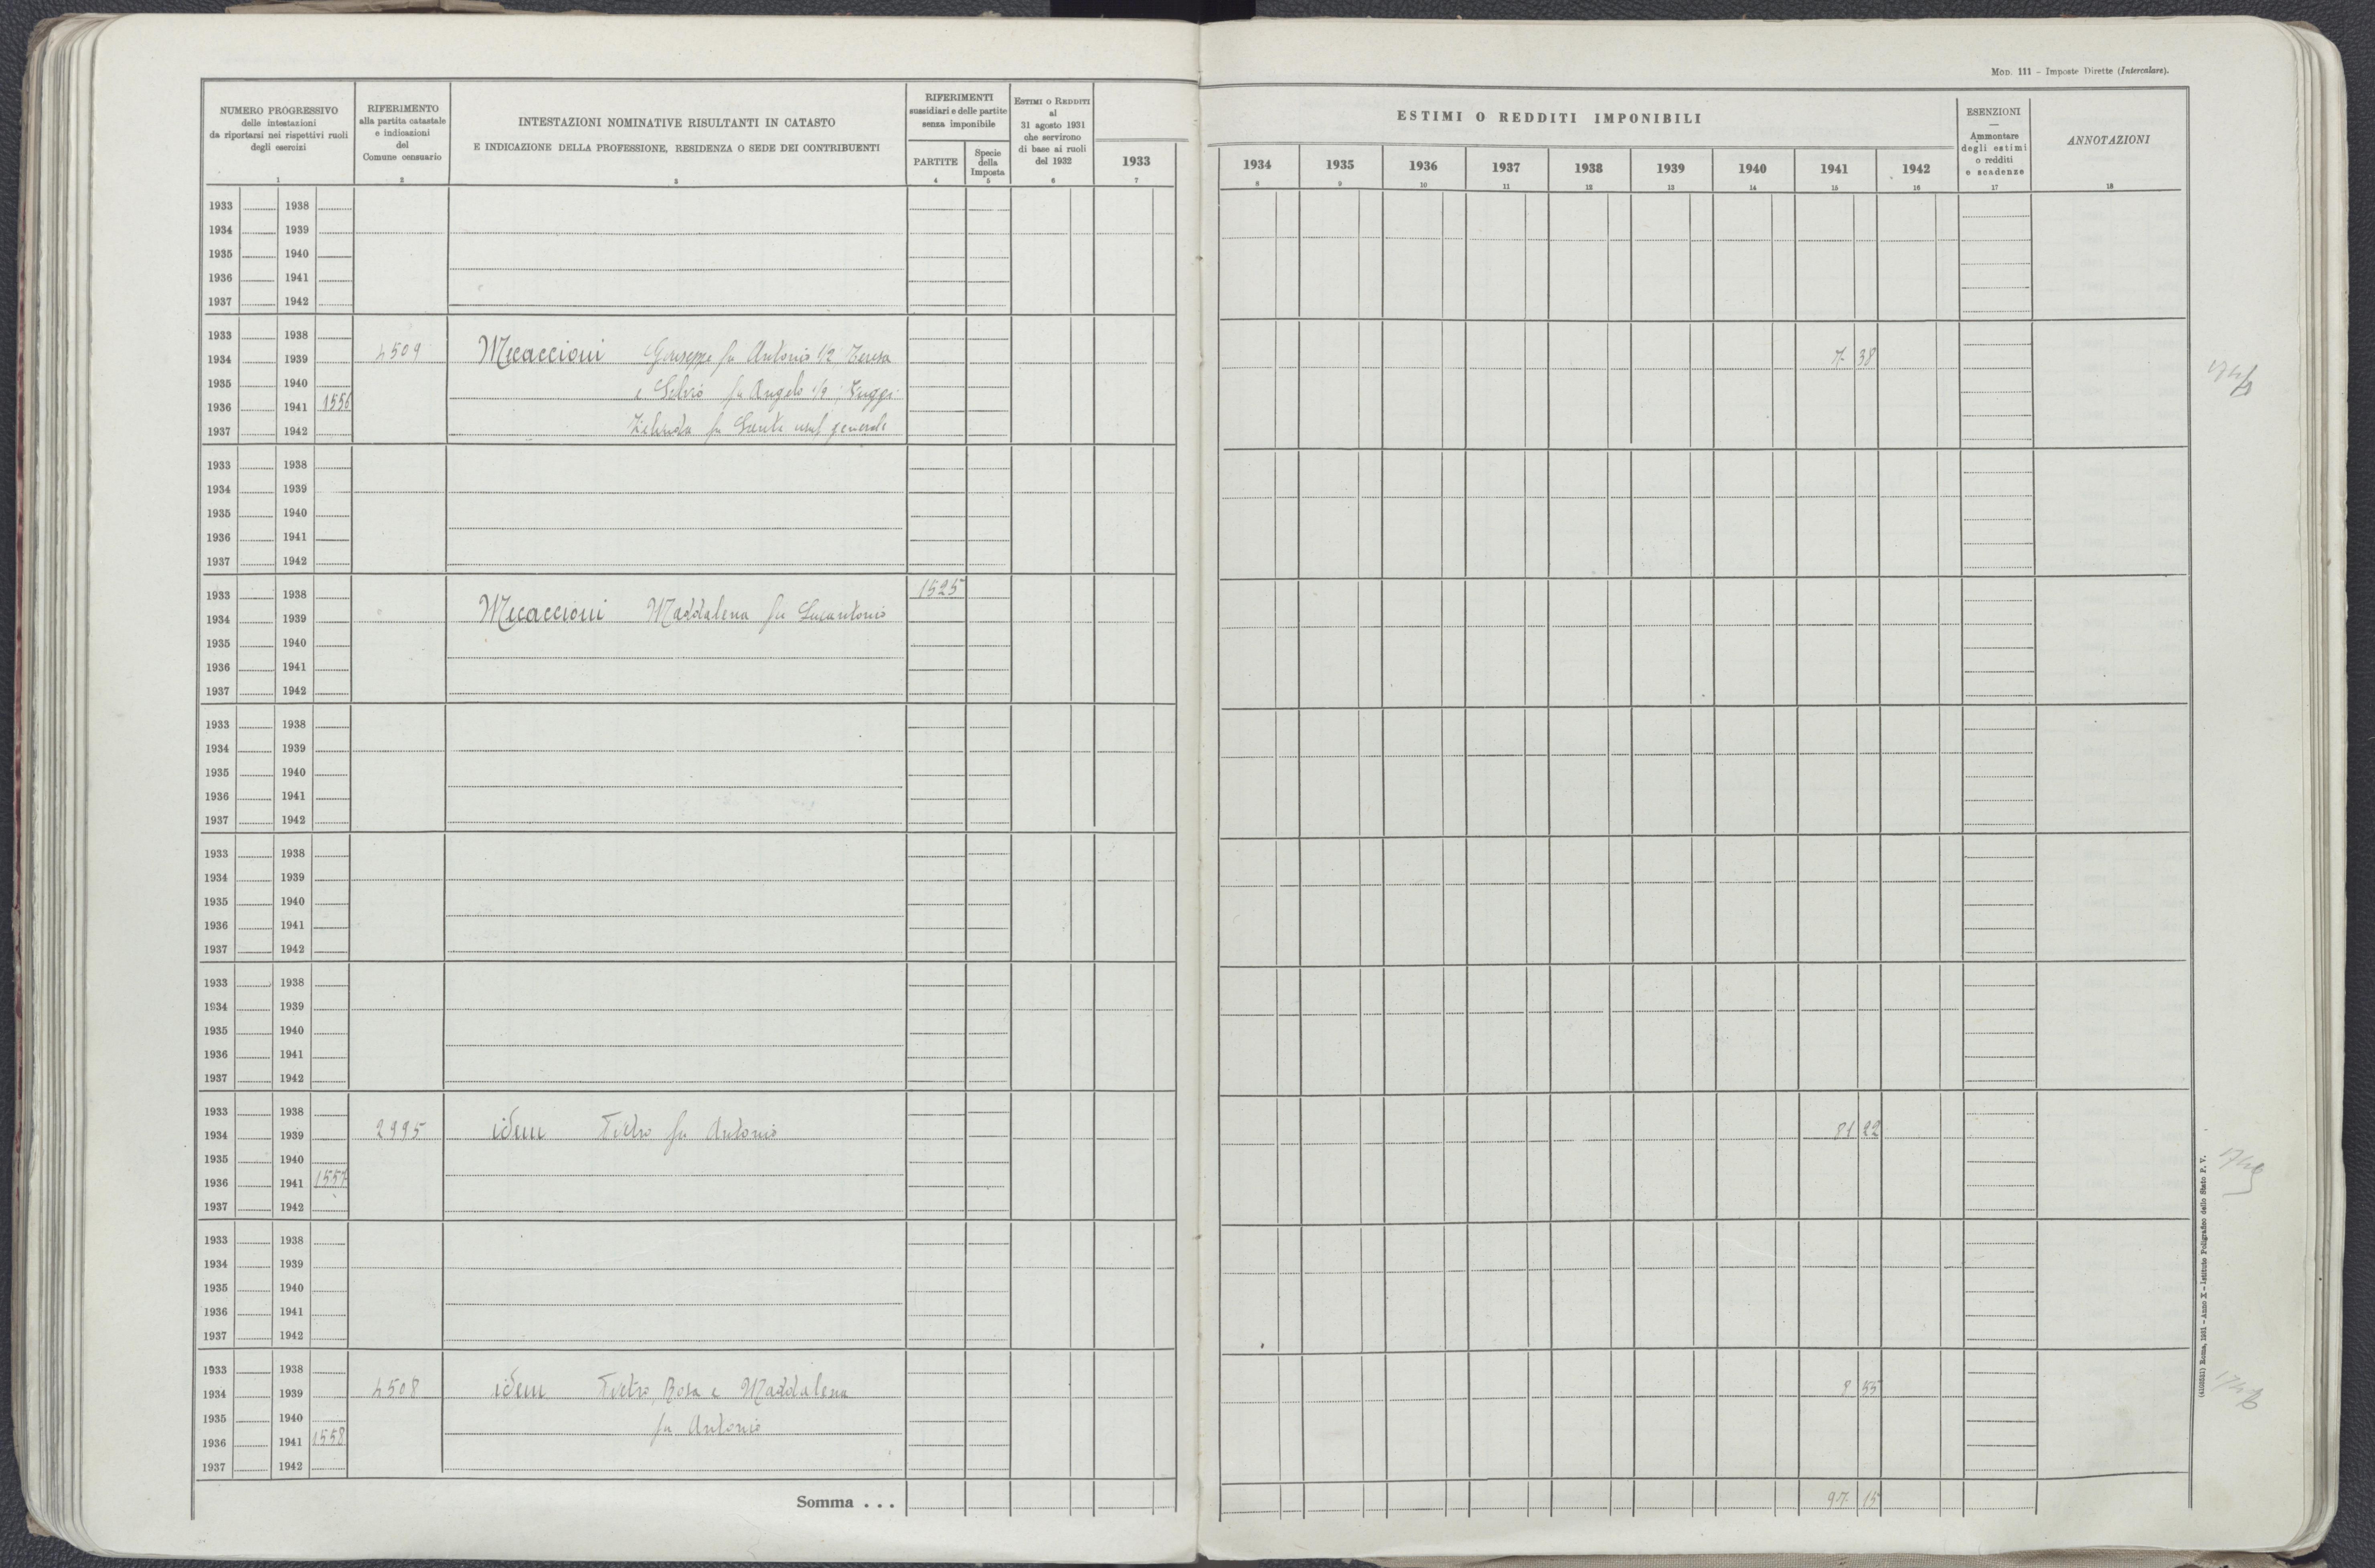 MOD. 111 – Imposte Dirette (Intercalare).
NUMERO PROGRESSIVO
delle intestazioni
da riportarsi nei rispettivi ruoli
degli esercizi
1
RIFERIMENTO
alla partita catastale
e indicazioni
del
Comune censuario
2
INTESTAZIONI NOMINATIVE RISULTANTI IN CATASTO
E INDICAZIONE DELLA PROFESSIONE, RESIDENZA O SEDE DEI CONTRIBUENTI
3
RIFERIMENTI
sussidiari e delle partite
senza imponibile
PARTITE
4
Specie
della
Imposta
5
ESTIMI O REDDITI
al
31 agosto 1931
che servirono
di base ai ruoli
del 1932
6
1933
7
ESTIMI O REDDITI IMPONIBILI
1934 1935 1936 1937 1938 1939 1940 1941 1942
8 9 10 11 12 13 14 15 16
ESENZIONI
—
Ammontare
degli estimi
o redditi
e scadenze
17
ANNOTAZIONI
18
1933 1938
1934 1939
1935 1940
1936 1941
1937 1942
1933 1938
1934 1939 4509 Mecaccioni Giuseppe fu Antonio 1/2, Teresa 7 38
1935 1940 e Silvio fu Angelo 1/2;
1936 1941 1556
1937 1942 fu Sante usuf generale
1933 1938
1934 1939
1935 1940
1936 1941
1937 1942
1933 1938 1525
1934 1939 Mecaccioni Maddalena fu Lucantonio
1935 1940
1936 1941
1937 1942
1933 1938
1934 1939
1935 1940
1936 1941
1937 1942
1933 1938
1934 1939
1935 1940
1936 1941
1937 1942
1933 1938
1934 1939
1935 1940
1936 1941
1937 1942
1933 1938
1934 1939 2995 idem Pietro fu Antonio 81 22
1935 1940
1936 1941 1557
1937 1942
1933 1938
1934 1939
1935 1940
1936 1941
1937 1942
1933 1938
1934 1939 4508 idem Pietro, Rosa e Maddalena 8 55
1935 1940 fu Antonio
1936 1941 1558
1937 1942
Somma . . . 97 15
(4100531) Roma, 1931 – Anno X – Istituto Poligrafico dello Stato P. V.